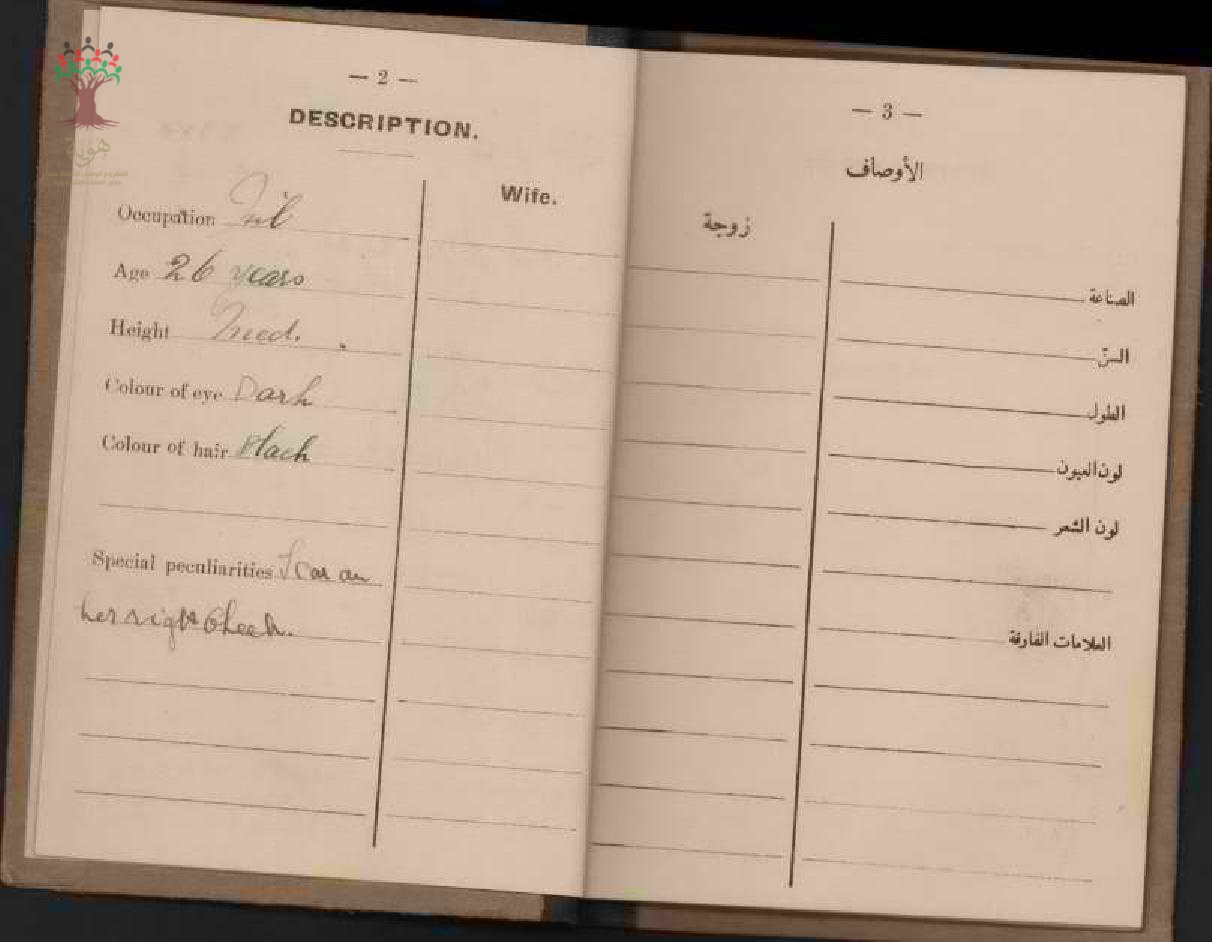 هوية
— 2 —
DESCRIPTION.
Wife.
Occupation Nil
Age 26 years
Height Med.
Colour of eye Dark
Colour of hair Black
Special peculiarities Scar on
her right Cheek.
— 3 —
الأوصاف
زوجة
الصناعة
السنّ
الطول
لون العيون
لون الشعر
العلامات الفارقة